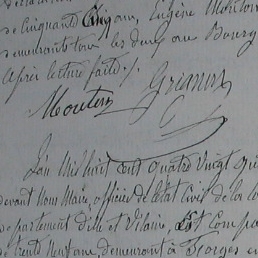 de Cinquante Cinq ans, Eugène
demeurant tous les deux au Bourg
Après lecture faite ./.
Grimm
Mouton
L'an Mil huit cent quatre vingt
devant Nous Maire, officier de l'état Civil de la
département d'Ille et Vilaine, Est Comp
de trente Neuf ans, demeurant à